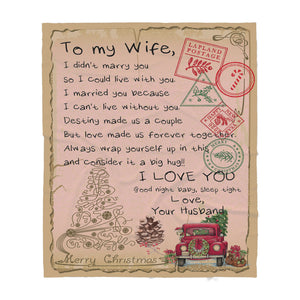 To my Wife,
I didn't marry you
so I could live with you.
I married you because
I can't live without you.
Destiny made us a couple
But love made us forever together.
Always wrap yourself up in this
and consider it a big hug!!
I LOVE YOU
Good night baby, sleep tight
Love,
Your Husband
LAPLAND
POSTAGE
Merry Christmas